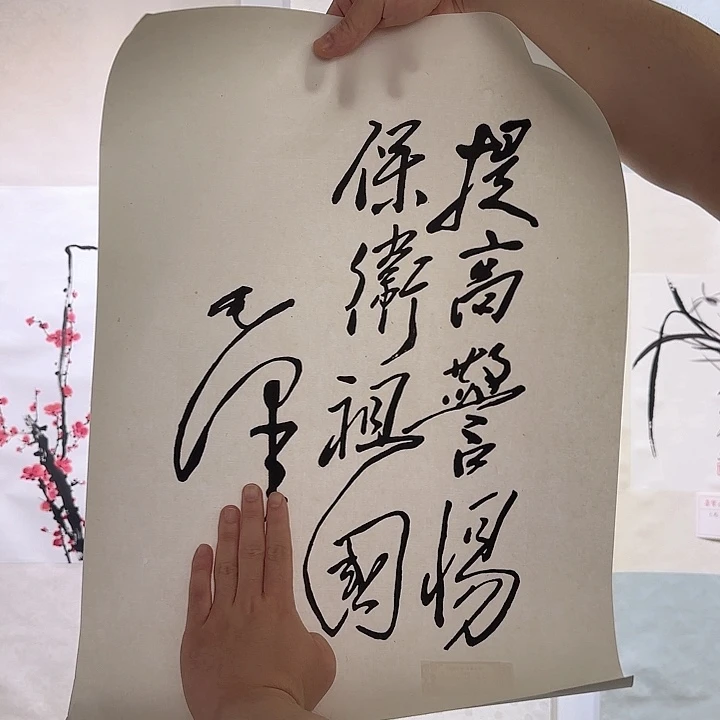 提高警惕
保衛祖國
毛泽